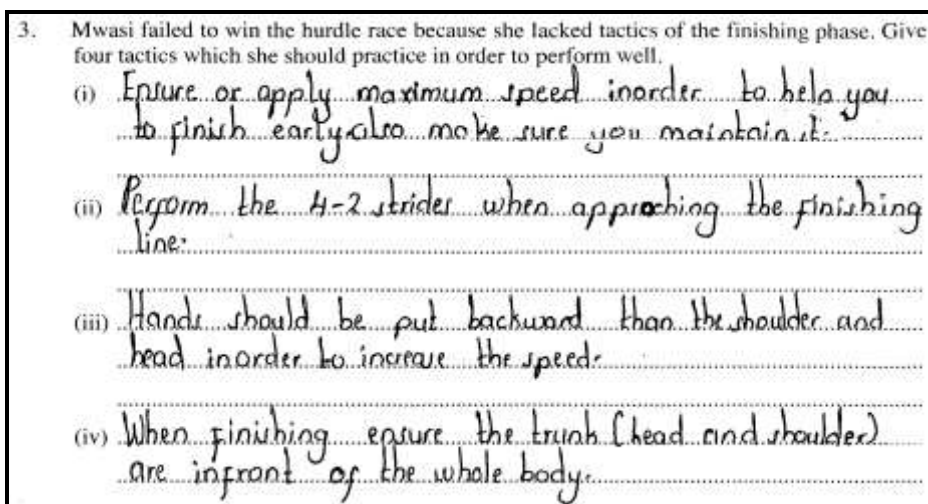 3. Mwasi failed to win the hurdle race because she lacked tactics of the finishing phase. Give
four tactics which she should practice in order to perform well.
(i) Ensure or apply maximum speed inorder to help you
to finish early also make sure you maintain it.
(ii) Perform the 4-2 strides when approching the finishing
line.
(iii) Hands should be put backward than the shoulder and
head inorder to increase the speed.
(iv) When finishing ensure the trunk (head and shoulder)
are infront of the whole body.